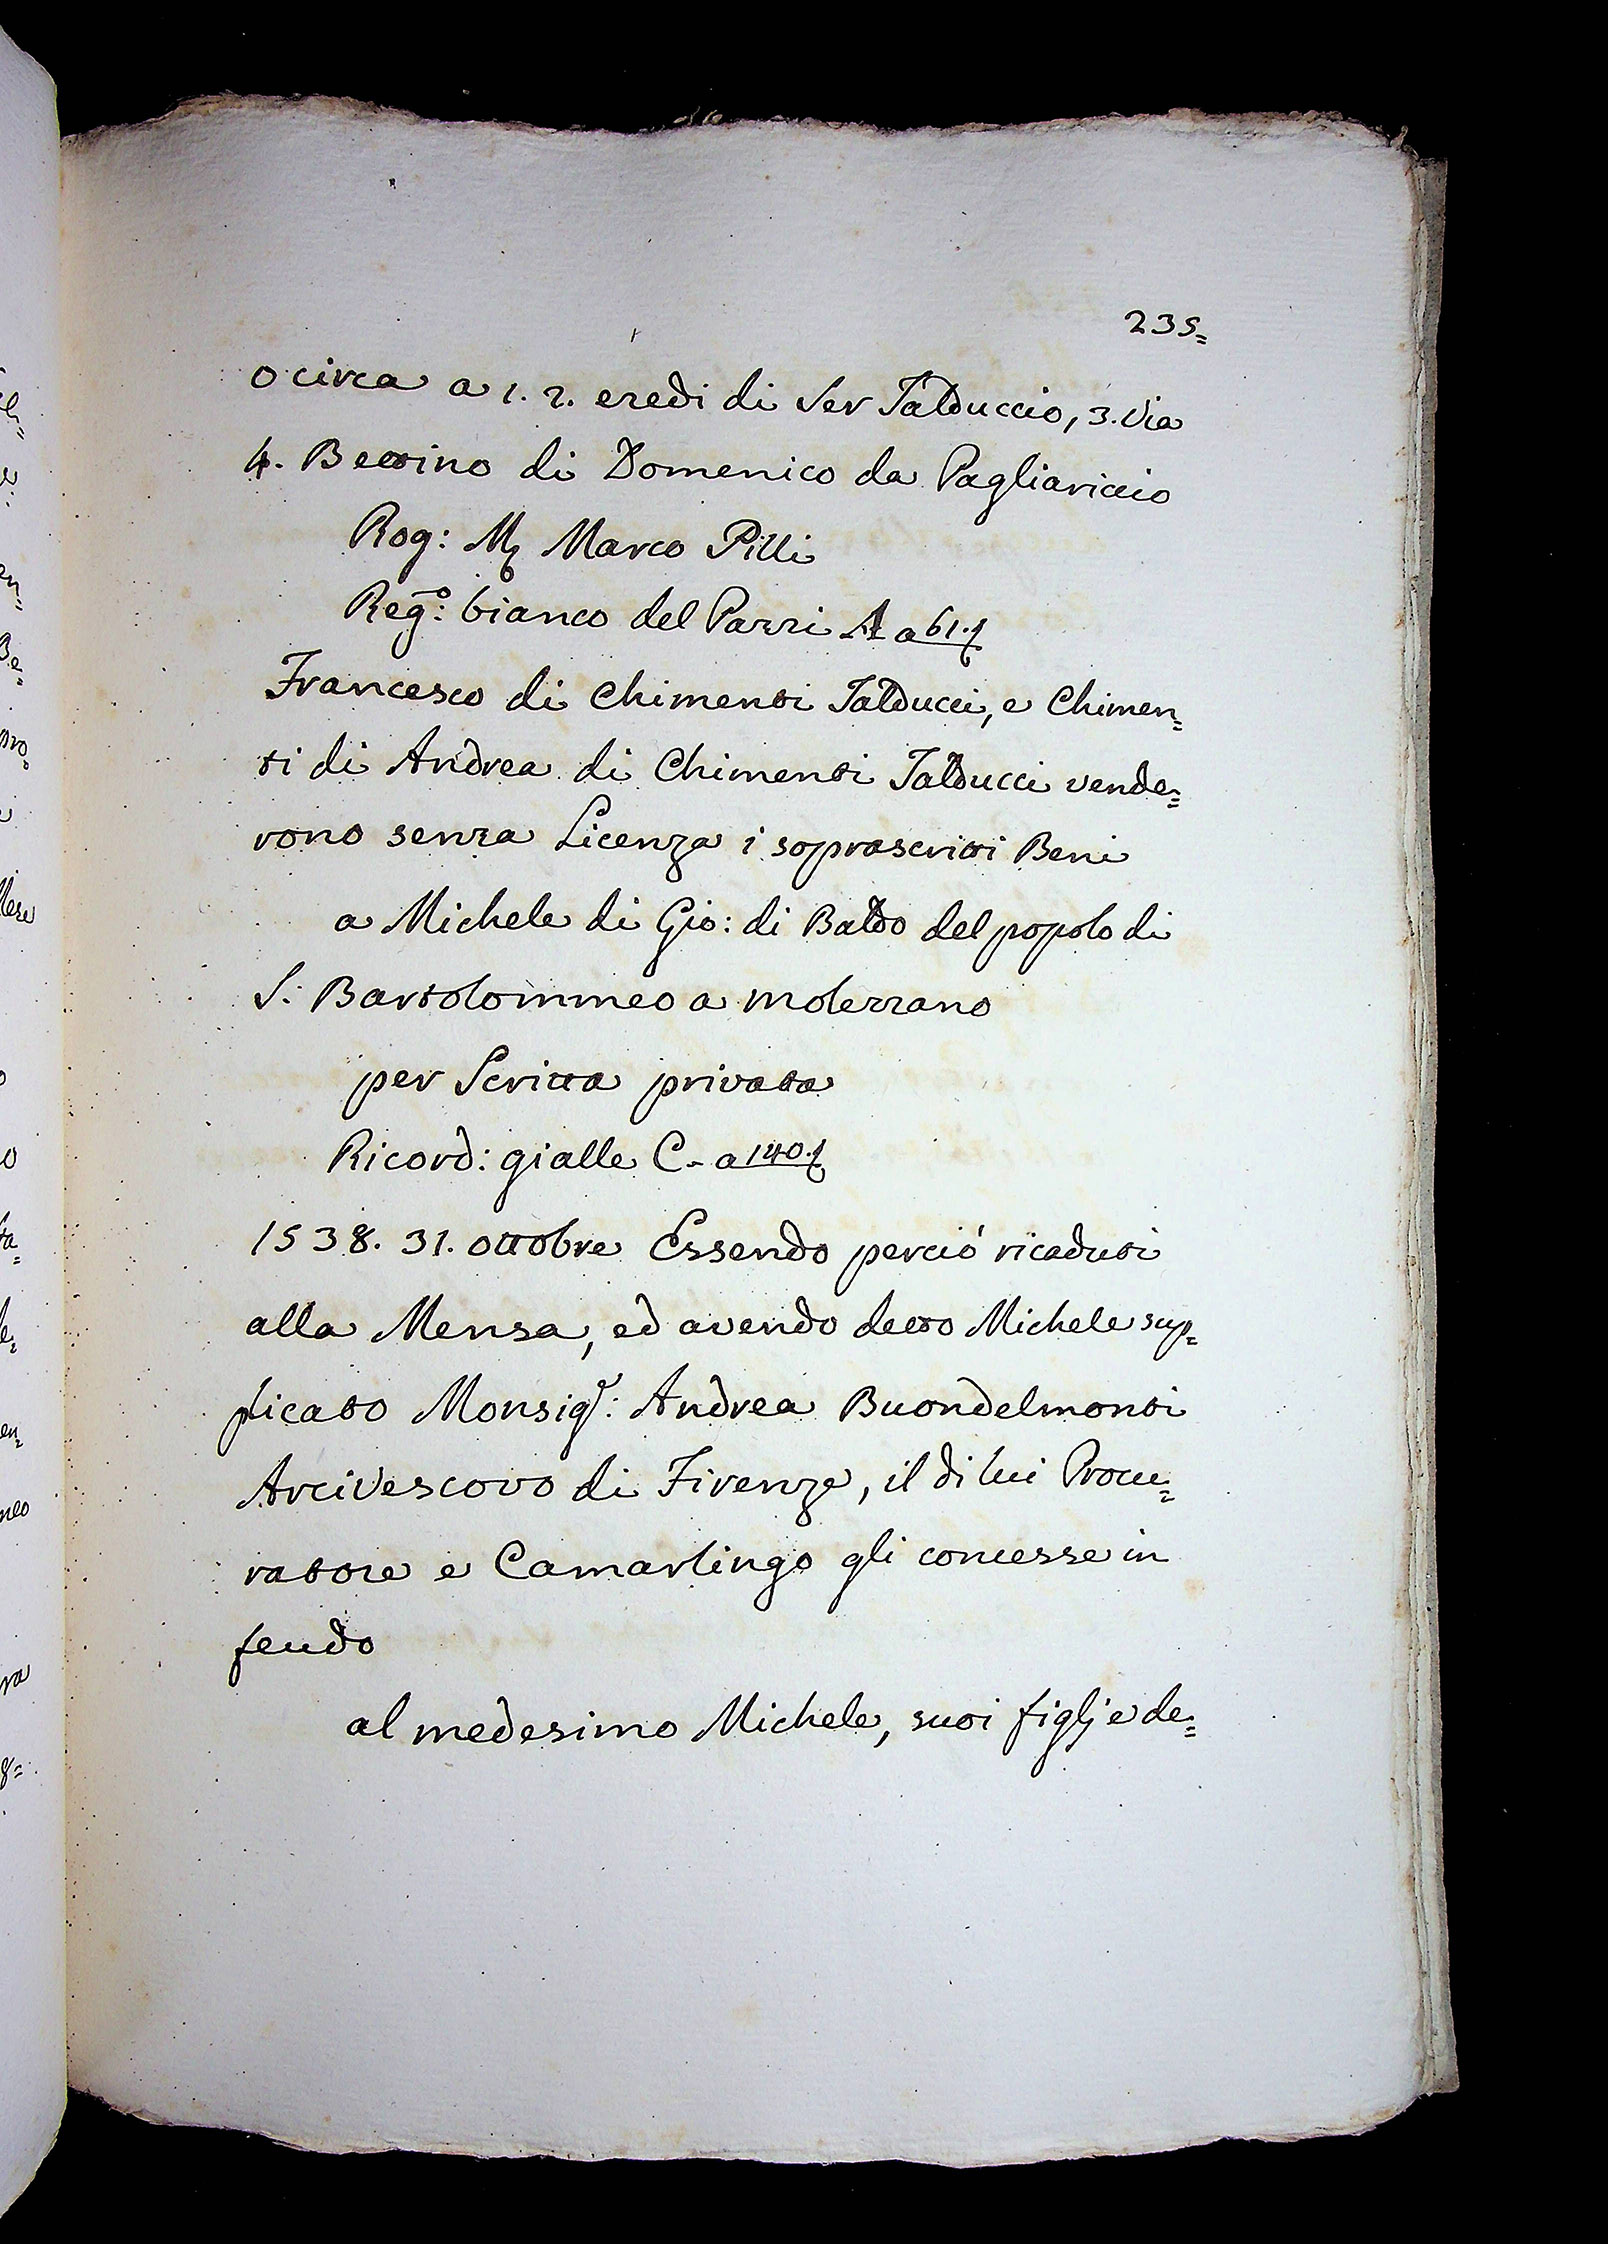 235=
o circa a 1. 2. eredi di Ser Talduccio, 3. Via
4. Bettino di Domenico da Pagliariccio
Rog: M Marco Pilli
Reg.o: bianco del Pazzi A a 61.
Francesco di Chimenti Talducci, e Chimen=
ti di Andrea di Chimenti Talducci vende=
rono senza Licenza i soprascritti Beni
a Michele di Gio: di Baldo del popolo di
S: Bartolommeo a Molezzano
per Scritta privata
Ricord: gialle C- a 140.
1538. 31. ottobre Essendo perciò ricaduti
alla Mensa, ed avendo detto Michele sup=
plicato Monsigr: Andrea Buondelmonti
Arcivescovo di Firenze, il di lui Procu=
ratore e Camarlingo gli concesse in
feudo
al medesimo Michele, suoi figlj e de=